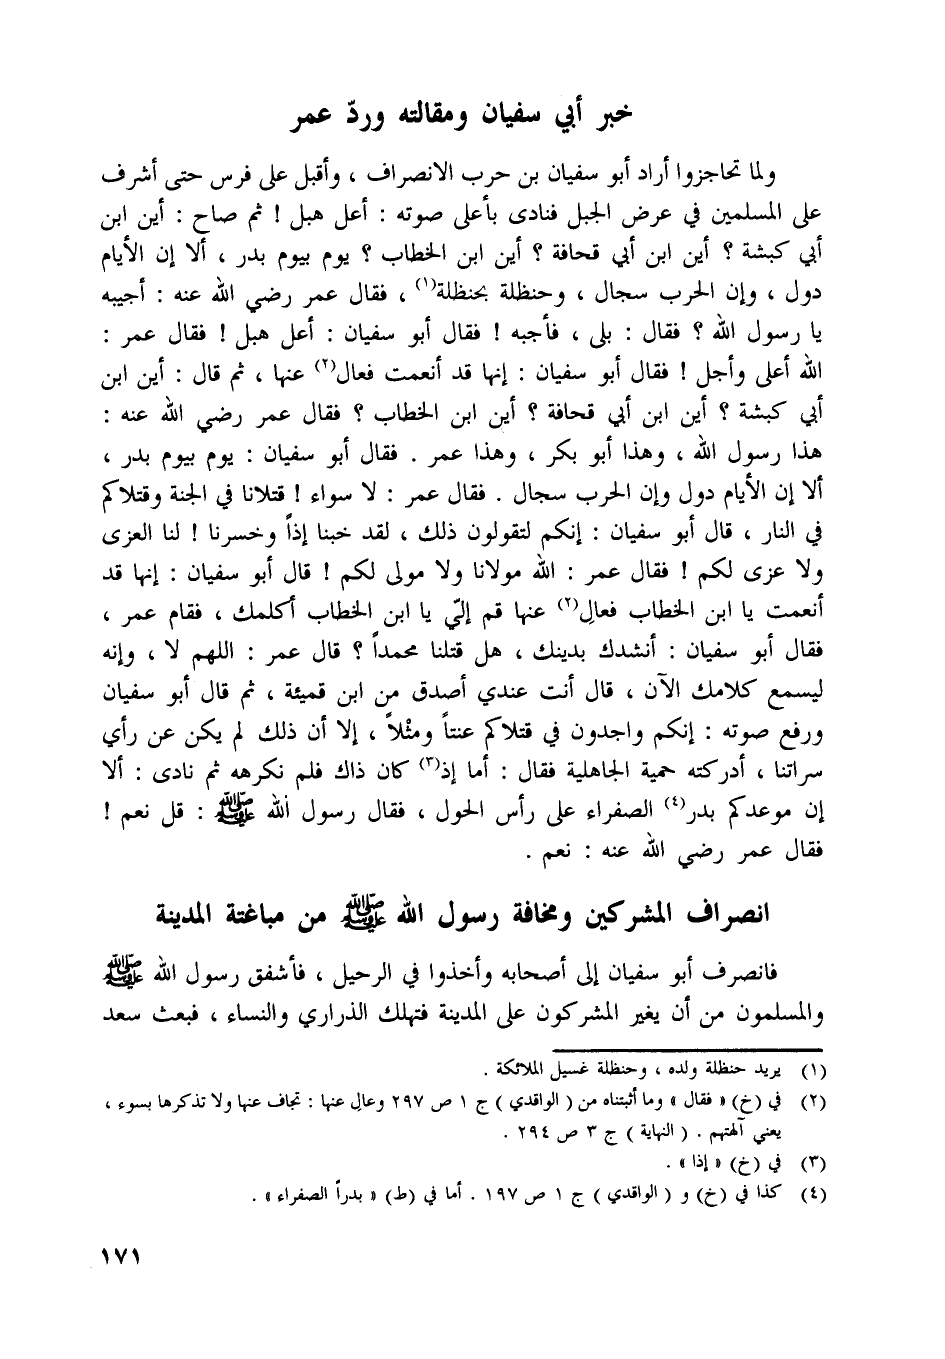 خبر أبي سفيان ومقالته وردّ عمر
ولما تحاجزوا أراد أبو سفيان بن حرب الانصراف ، وأقبل على فرس حتى أشرف
على المسلمين في عرض الجبل فنادى بأعلى صوته : أعل هبل ! ثم صاح : أين ابن
أبي كبشة ؟ أين ابن أبي قحافة ؟ أين ابن الخطاب ؟ يوم بيوم بدر ، ألا إن الأيام
دول ، وإن الحرب سجال ، وحنظلة بحنظلة(١) ، فقال عمر رضي الله عنه : أجيبه
يا رسول الله ؟ فقال : بلى ، فأجبه ! فقال أبو سفيان : أعل هبل ! فقال عمر :
الله أعلى وأجل ! فقال أبو سفيان : إنها قد أنعمت فعال(٢) عنها ، ثم قال : أين ابن
أبي كبشة ؟ أين ابن أبي قحافة ؟ أين ابن الخطاب ؟ فقال عمر رضي الله عنه :
هذا رسول الله ، وهذا أبو بكر ، وهذا عمر . فقال أبو سفيان : يوم بيوم بدر ،
ألا إن الأيام دول وإن الحرب سجال . فقال عمر : لا سواء ! قتلانا في الجنة وقتلاكم
في النار ، قال أبو سفيان : إنكم لتقولون ذلك ، لقد خبنا إذاً وخسرنا ! لنا العزى
ولا عزى لكم ! فقال عمر : الله مولانا ولا مولى لكم ! قال أبو سفيان : إنها قد
أنعمت يا ابن الخطاب فعالِ(٢) عنها قم إليّ يا ابن الخطاب أكلمك ، فقام عمر ،
فقال أبو سفيان : أنشدك بدينك ، هل قتلنا محمداً ؟ قال عمر : اللهم لا ، وإنه
ليسمع كلامك الآن ، قال أنت عندي أصدق من ابن قميئة ، ثم قال أبو سفيان
ورفع صوته : إنكم واجدون في قتلاكم عنتاً ومثْلاً ، إلا أن ذلك لم يكن عن رأي
سراتنا ، أدركته حمية الجاهلية فقال : أما إذ(٣) كان ذاك فلم نكرهه ثم نادى : ألا
إن موعدكم بدر(٤) الصفراء على رأس الحول ، فقال رسول الله ﷺ : قل نعم !
فقال عمر رضي الله عنه : نعم .
انصراف المشركين ومخافة رسول الله ﷺ من مباغتة المدينة
فانصرف أبو سفيان إلى أصحابه وأخذوا في الرحيل ، فأشفق رسول الله ﷺ
والمسلمون من أن يغير المشركون على المدينة فتهلك الذراري والنساء ، فبعث سعد
(١) يريد حنظلة ولده ، وحنظلة غسيل الملائكة .
(٢) في (خ) « فقال » وما أثبتناه من ( الواقدي ) ج ١ ص ٢٩٧ وعالِ عنها : تجاف عنها ولا تذكرها بسوء ،
يعني آلهتهم . ( النهاية ) ج ٣ ص ٢٩٤ .
(٣) في (خ) « إذا » .
(٤) كذا في (خ) و ( الواقدي ) ج ١ ص ١٩٧ . أما في (ط) « بدراً الصفراء » .
١٧١